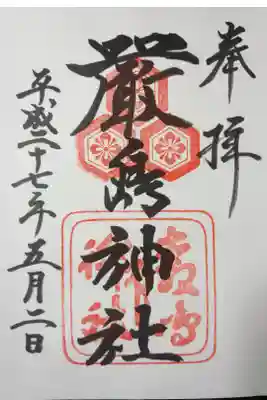 奉拝
嚴嶋神社
平成二十七年五月二日